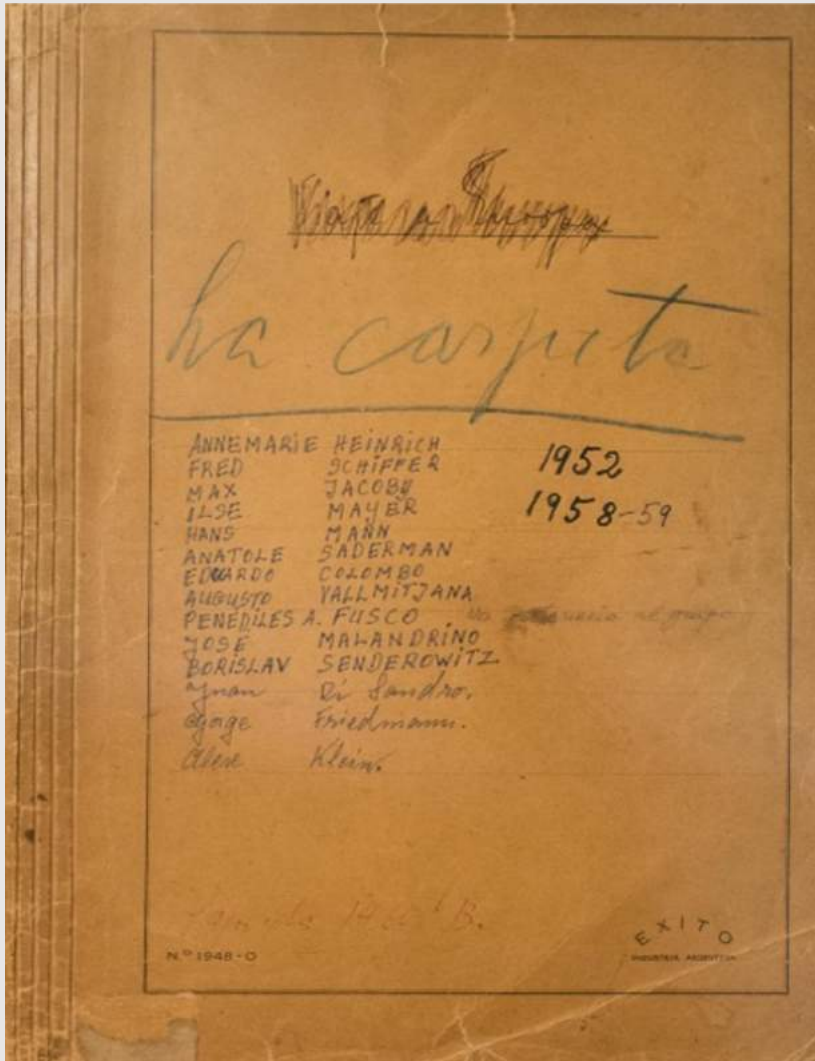 La carpeta
ANNEMARIE HEINRICH
FRED SCHIFFER 1952
MAX JACOBY
ILSE MAYER 1958-59
HANS MANN
ANATOLE SADERMAN
EDUARDO COLOMBO
AUGUSTO VALLMITJANA
PENEDILES A. FUSCO al grupo
JOSE MALANDRINO
BORISLAV SENDEROWITZ
Juan Di Sandro.
Friedmann.
Klein.
B.
EXITO
N.º 1948-O INDUSTRIA ARGENTINA